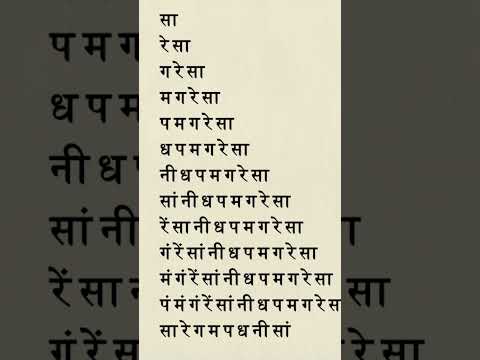 सा
रे सा
ग रे सा
म ग रे सा
प म ग रे सा
ध प म ग रे सा
नी ध प म ग रे सा
सां नी ध प म ग रे सा
रें सा नी ध प म ग रे सा
गं रें सां नी ध प म ग रे सा
मं गं रें सां नी ध प म ग रे सा
पं मं गं रें सां नी ध प म ग रे स
सा रे ग म प ध नी सां